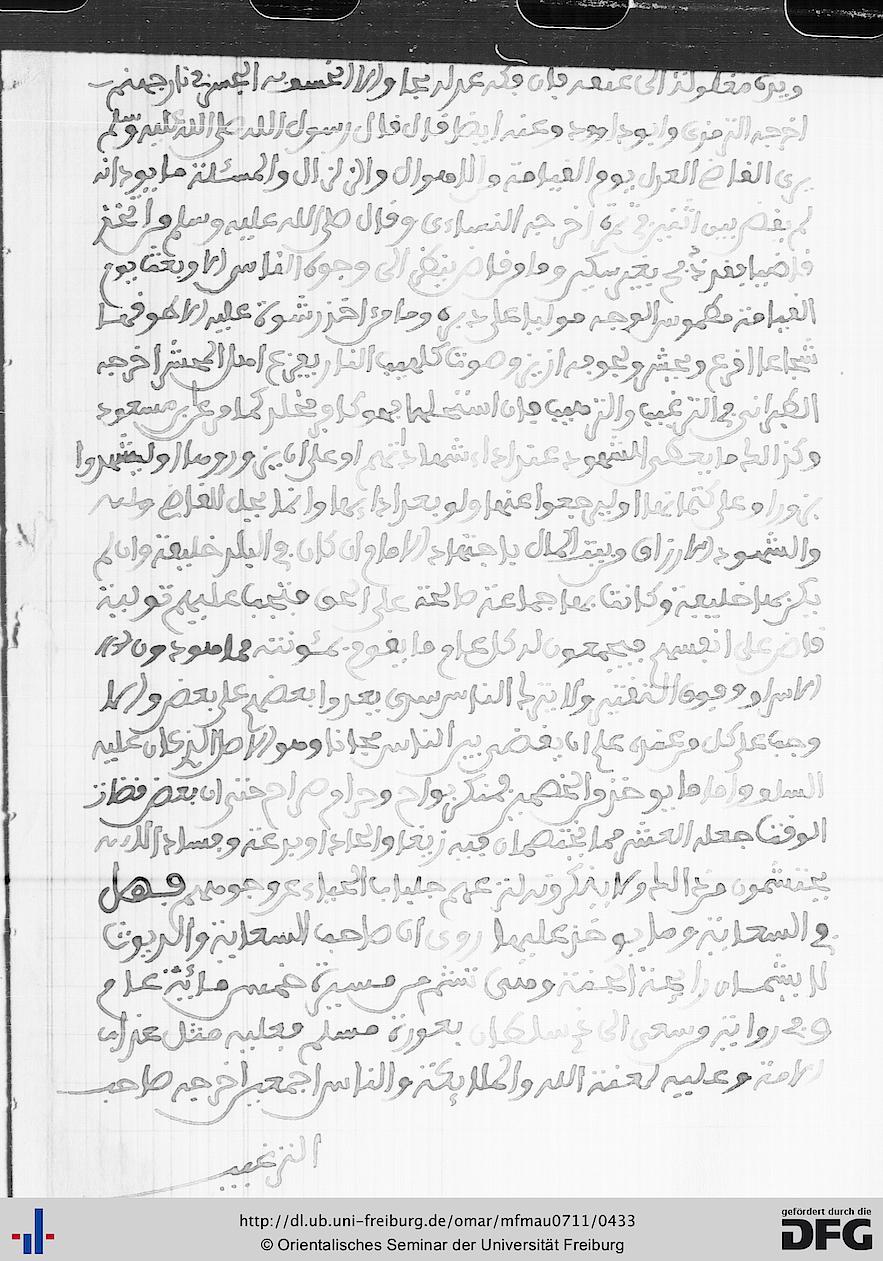 ويده مغلولة الى عنقه فان فكه عدله نجا والا انخسف به الجسر في نار جهنم
اخرجه الترمذي وابو داوود وعنه ايضا قال قال رسول الله صلى الله عليه وسلم
يرى القاضي العدل يوم القيامة والاهوال والزلزال والمسئلة ما يود انه
لم يقض بين اثنين في تمرة اخرجه النساءي وقال صلى الله عليه وسلم من اتخذ
قاضيا فقد ذبح بغير سكين وما من قاض ينظر الى وجوه الناس الا ويبعث يوم
القيامة مطموس الوجه موليا على دبره وما من اخذ رشوة عليه الا طوقها
شجاعا اقرع ويحشر ولجوفه ازيز وصوت كلهيب النار يفزع اهل المحشر اخرجه
الطبراني في الترغيب والترهيب فان استحلها فهو كافر مخلد كما مر عن ابن مسعود
وكذالك ما يعطى الشهود عند اداء شهادتهم او على ان يزوروها او ليشهدوا
بزور او على كتمانها او ليرجعوا عنها ولو بعد اداءها وانما يحل للقاضي
والشهود الارزاق من بيت المال باجتهاد الامام ان كان في البلد خليفة وان لم
يكن بها خليفة وكانت بها جماعة صالحة على الحق فتجب عليهم تولية
قاض على انفسهم فيجمعون له كل عام ما يقوم بمئونته مما هو دون
الاسراف وفوق التقتير ولا يترك الناس سدى يعدوا بعضهم على بعض والا
وجب على كل من عين على ان يقضي بين الناس مجانا وهو الاصل الذي كان عليه
السلف واما ما يوخذ من الخصمين فمنكر بواح وحرام صراح حتى ان بعض قضاة
الوقت جعله العشر مما يختصمان فيه زيغا والحادا وبدعة وفسادا
يحتشمون من ذالك ولا ينكرونه لنزعهم جلباب الحياء عن وجوههم فصل
في السعاية وما يوخذ عليها روي ان صاحب السعاية والديوث
لا يشمان رايحة الجنة وهي تشم من مسيرة خمس مائة عام
وفي رواية من سعى الى ذي سلطان بعورة مسلم فعليه مثل عذاب
الامة وعليه لعنة الله والملايكة والناس اجمعين اخرجه صاحب
الترغيب
http://dl.ub.uni-freiburg.de/omar/mfmau0711/0433
© Orientalisches Seminar der Universität Freiburg
gefördert durch die
DFG